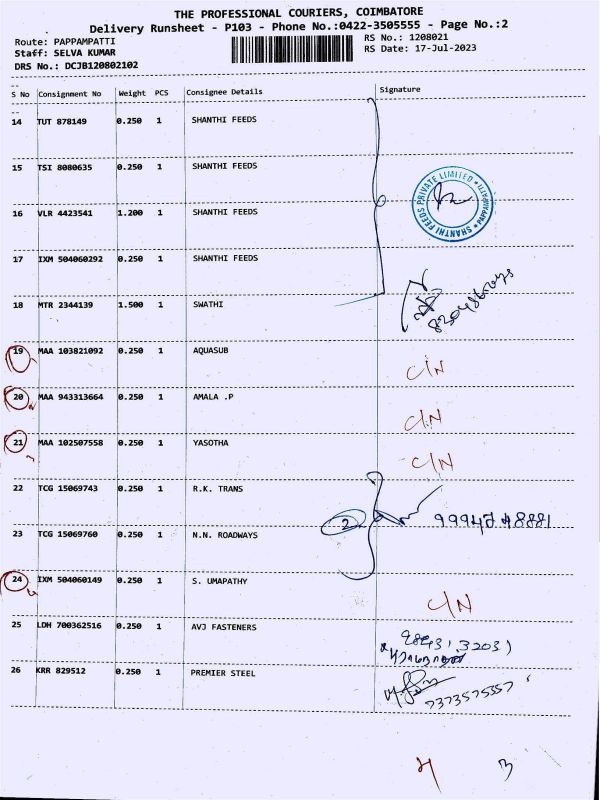 THE PROFESSIONAL COURIERS, COIMBATORE
Delivery Runsheet - P103 - Phone No.:0422-3505555 - Page No.:2
Route: PAPPAMPATTI RS No.: 1208021
Staff: SELVA KUMAR RS Date: 17-Jul-2023
DRS No.: DCJB120802102
S No Consignment No Weight PCS Consignee Details Signature
14 TUT 878149 0.250 1 SHANTHI FEEDS
15 TSI 8080635 0.250 1 SHANTHI FEEDS
SHANTHI FEEDS PRIVATE LIMITED * PAPPAMPATTI *
16 VLR 4423541 1.200 1 SHANTHI FEEDS
17 IXM 504060292 0.250 1 SHANTHI FEEDS
18 MTR 2344139 1.500 1 SWATHI
19 MAA 103821092 0.250 1 AQUASUB C/N
20 MAA 943313664 0.250 1 AMALA .P C/N
21 MAA 102507558 0.250 1 YASOTHA C/N
22 TCG 15069743 0.250 1 R.K. TRANS
2
23 TCG 15069760 0.250 1 N.N. ROADWAYS
24 IXM 504060149 0.250 1 S. UMAPATHY C/N
25 LDH 700362516 0.250 1 AVJ FASTENERS
26 KRR 829512 0.250 1 PREMIER STEEL
7373575357